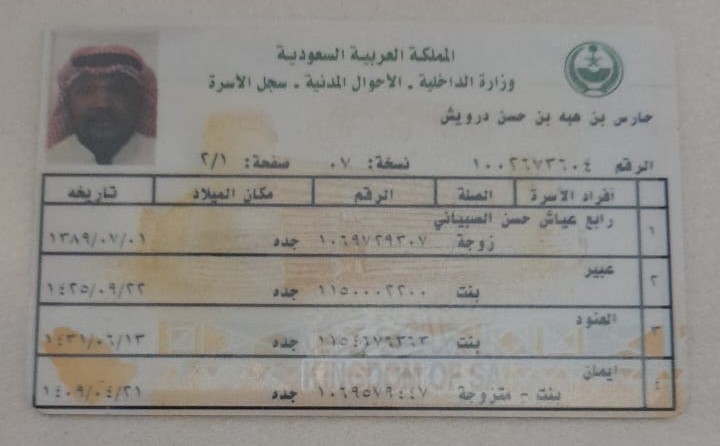 المملكة العربية السعودية
وزارة الداخلية - الأحوال المدنية - سجل الأسرة
حارس بن هبه بن حسن درويش
الرقم ١٠٠٢٦٧٣٦٠٤ نسخة: ٠٧ صفحة: ٢/١
أفراد الأسرة الصلة الرقم مكان الميلاد تاريخه
١ رابع عياش حسن الصبياني
زوجة ١٠٦٩٧٢٩٣٠٧ جده ١٣٨٩/٠٧/٠١
٢ عبير
بنت ١١٥٠٠٠٢٢٠٠ جده ١٤٢٥/٠٩/٢٢
٣ العنود
بنت ١١٥٤٦٧٦٣٦٣ جده ١٤٣١/٠٦/١٣
٤ ايمان
بنت - متزوجة ١٠٦٩٥٧٩٤٤٧ جده ١٤٠٩/٠٤/٢١
KINGDOM OF SA